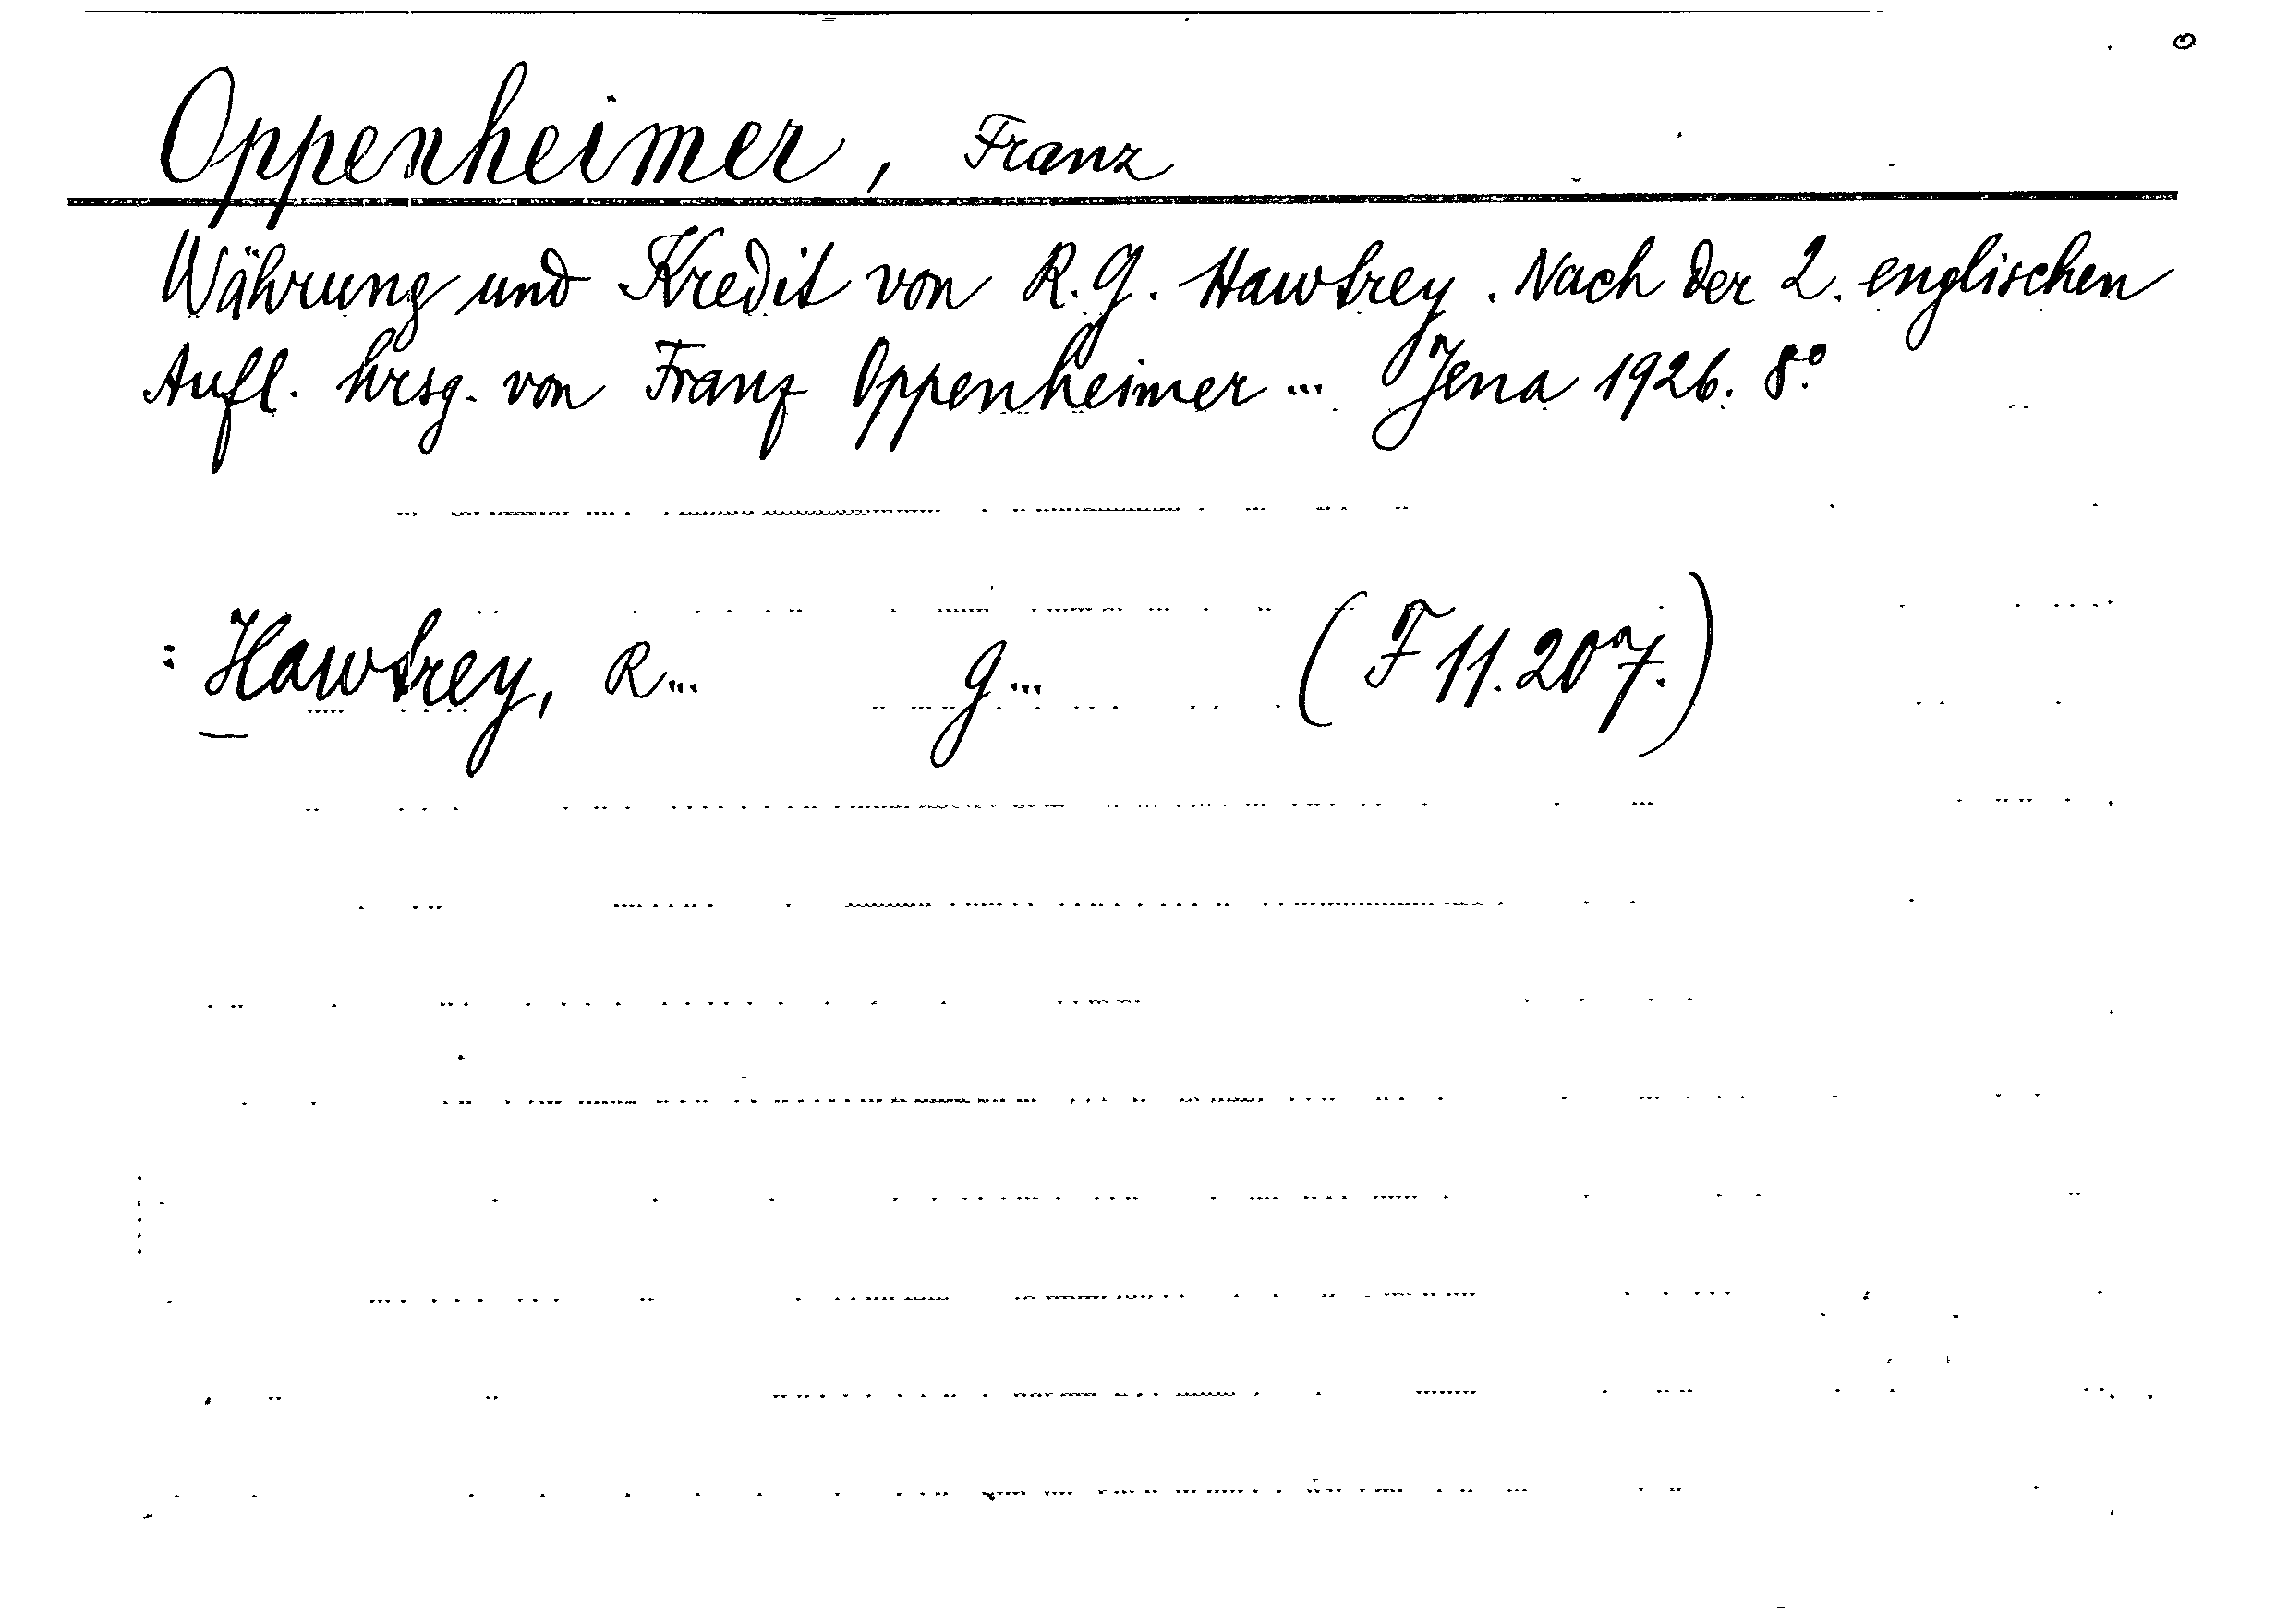 Oppenheimer, Franz
Währung und Kredit von R. G. Hawtrey. Nach der 2. englischen
Aufl. hrsg. von Franz Oppenheimer ... Jena 1926. 8°.
: Hawtrey, R... G... (F 11.207.)